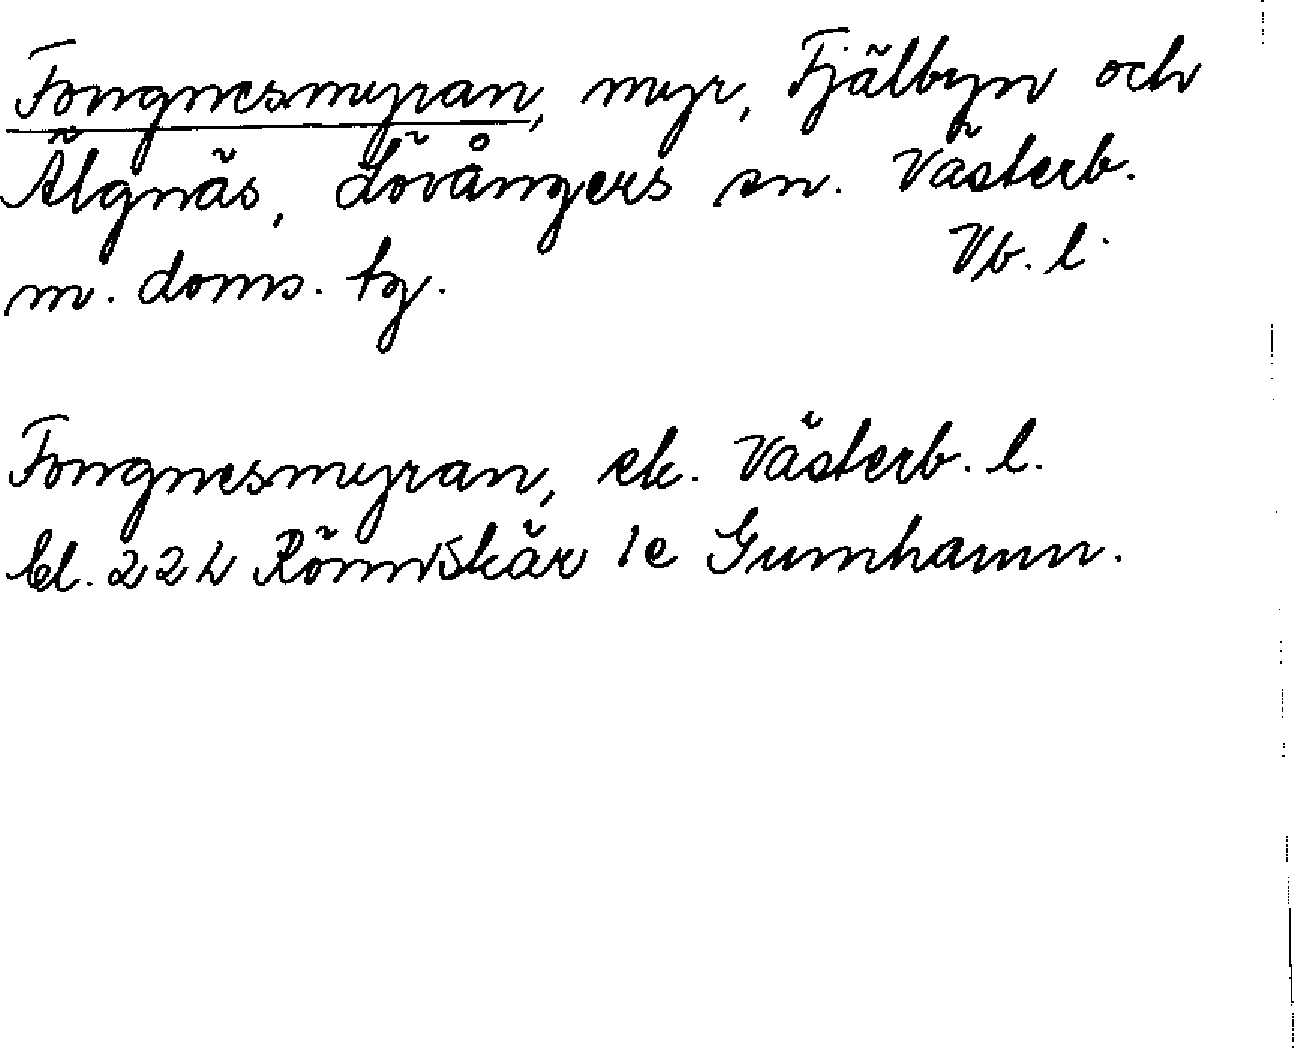 Fongnesmyran, myr, Fjälbyn och
Älgnäs, Lövångers sn. Västerb.
m. doms. tg. Vb. l.
Fongnesmyran, ek. Västerb. l.
bl. 22 h Rönnskär 1e Gumhamn.